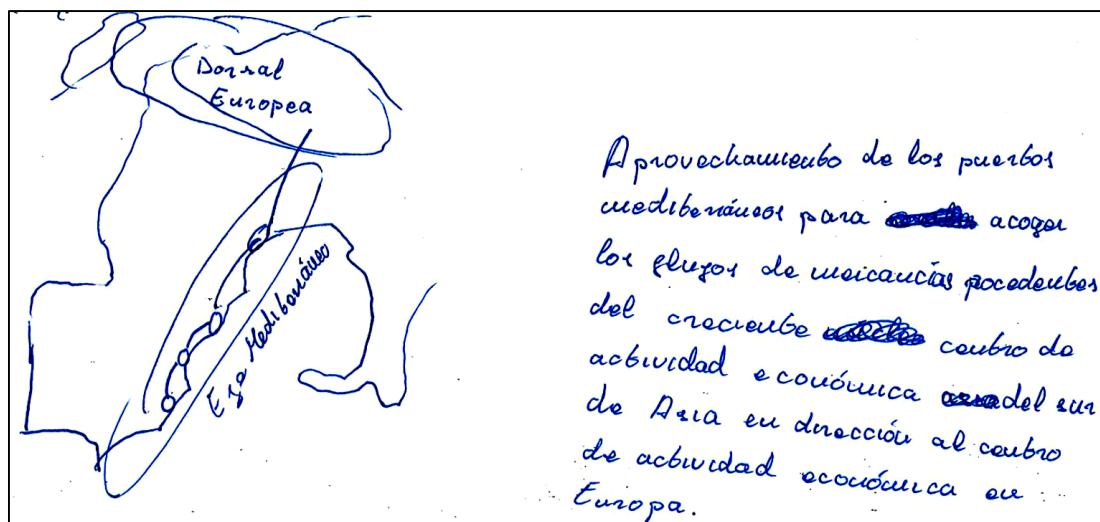 Dorsal
Europea
Eje Mediterráneo
Aprovechamiento de los puertos
mediterráneos para acoger
los flujos de mercancías pocedentes
del creciente centro de
actividad económica del sur
de Asia en dirección al centro
de actividad económica en
Europa.